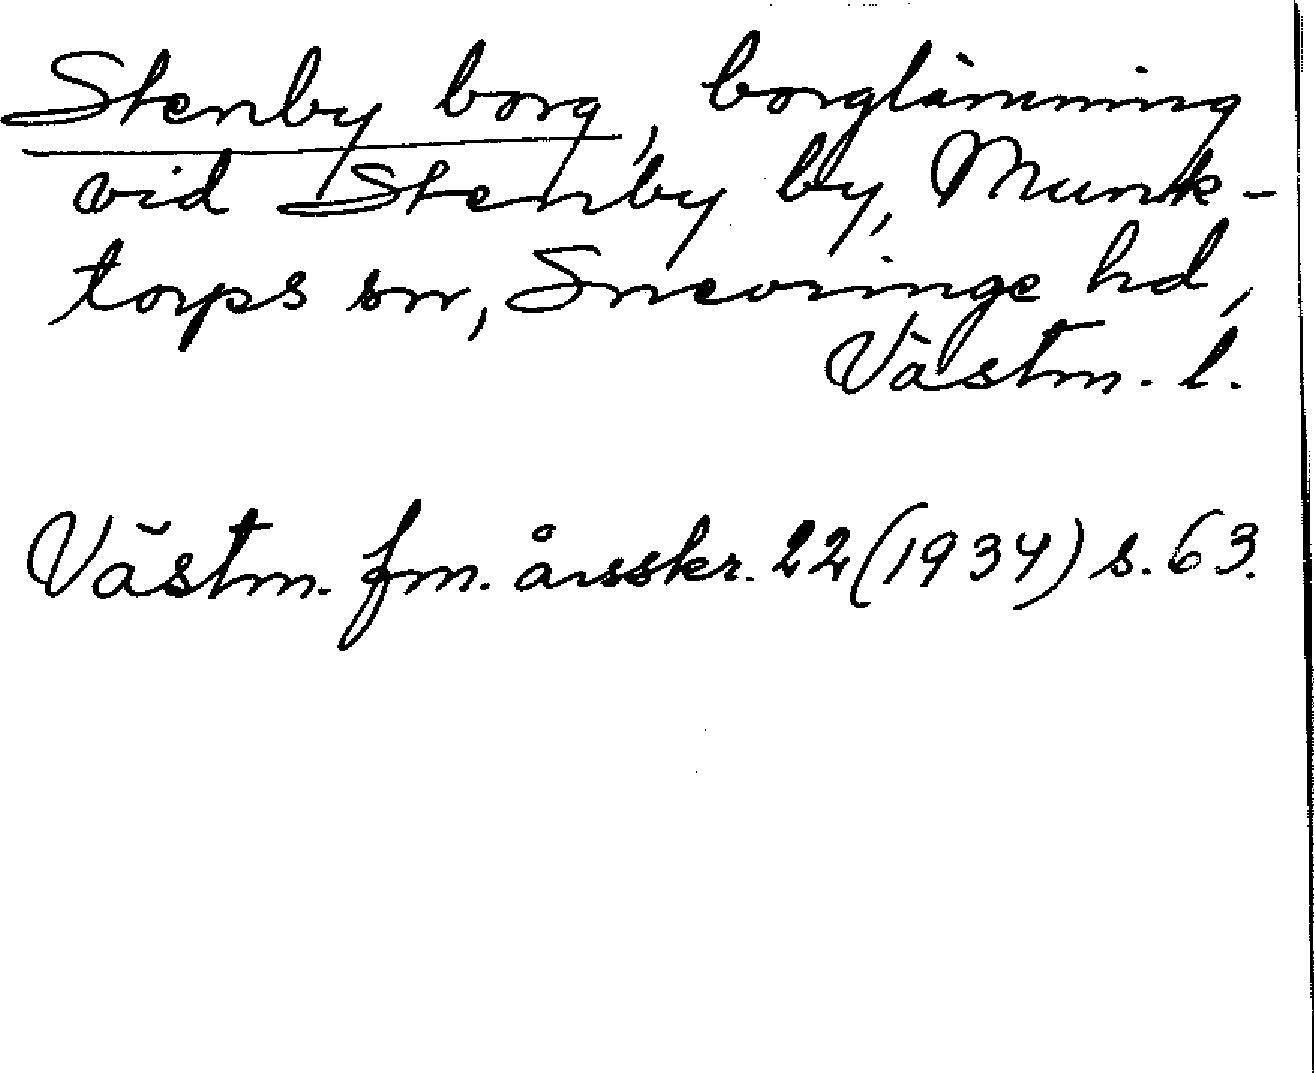 Stenby borg, borglämning
vid Stenby by, Munk-
torps sn, Snevringe hd,
Västm. l.
Västm. fm. årsskr. 22 (1934) s. 63.